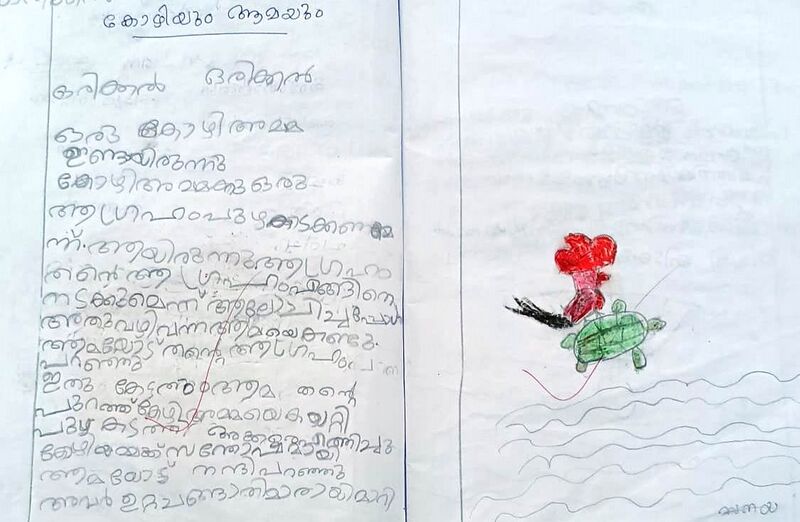 കോഴിയും ആമയും
ഒരിക്കൽ ഒരിക്കൽ
ഒരു കോഴിഅമ്മ
ഉണ്ടായിരുന്നു
കോഴിഅമ്മക്കു ഒരു
ആഗ്രഹംപുഴകടക്കണമെ
ന്ന്. ആയിരുന്നുആഗ്രഹം
തൻെറ ആഗ്രഹംഎങ്ങിനെ
നടക്കുമെന്ന് ആലോചിച്ചപ്പോൾ
അതുവഴിവന്നആമയെകണ്ടു.
ആമയോട് തൻെറ ആഗ്രഹം
പറഞ്ഞു
ഇതു കേട്ടആമ തൻെറ
പുറത്ത്കോഴിഅമ്മയെകയറ്റി
പുഴ കടത്തി
കോഴിയമ്മക്ക്സന്തോഷമായി
ആമയോട് നന്ദിപറഞ്ഞു
അവർ ഉറ്റചങ്ങാതിമാരായിമാറി